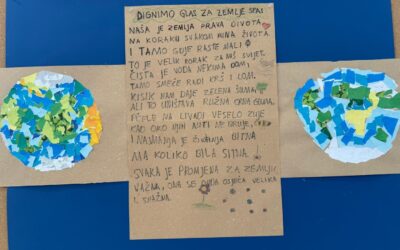 DIGNIMO GLAS ZA ZEMLJE SPAS
NAŠA JE ZEMLJA PRAVA DIVOTA,
NA KORAKU SVAKOM NIMA ŽIVOTA.
I TAMO GDJE RASTE MALI
TO JE VELIK KORAK ZA NAŠ SVIJET.
ČISTA JE VODA NEKOMA DOM,
TAMO SMEĆE RADI KRŠ I LOM.
KISIK NAM DAJE ZELENA ŠUMA,
ALI TO UNIŠTAVA RUŽNA CRNA GUMA.
PČELU NA LIVADI VESELO ZUJE
KAO OKO NJIH
I NAJMANJA JE ŽIVOTINJA BITNA
MA KOLIKO BILA SITNA.
SVAKA JE PROMJENA ZA ZEMLJU
VAŽNA, ONA SE OSJEĆA VELIKA
I SNAŽNA.